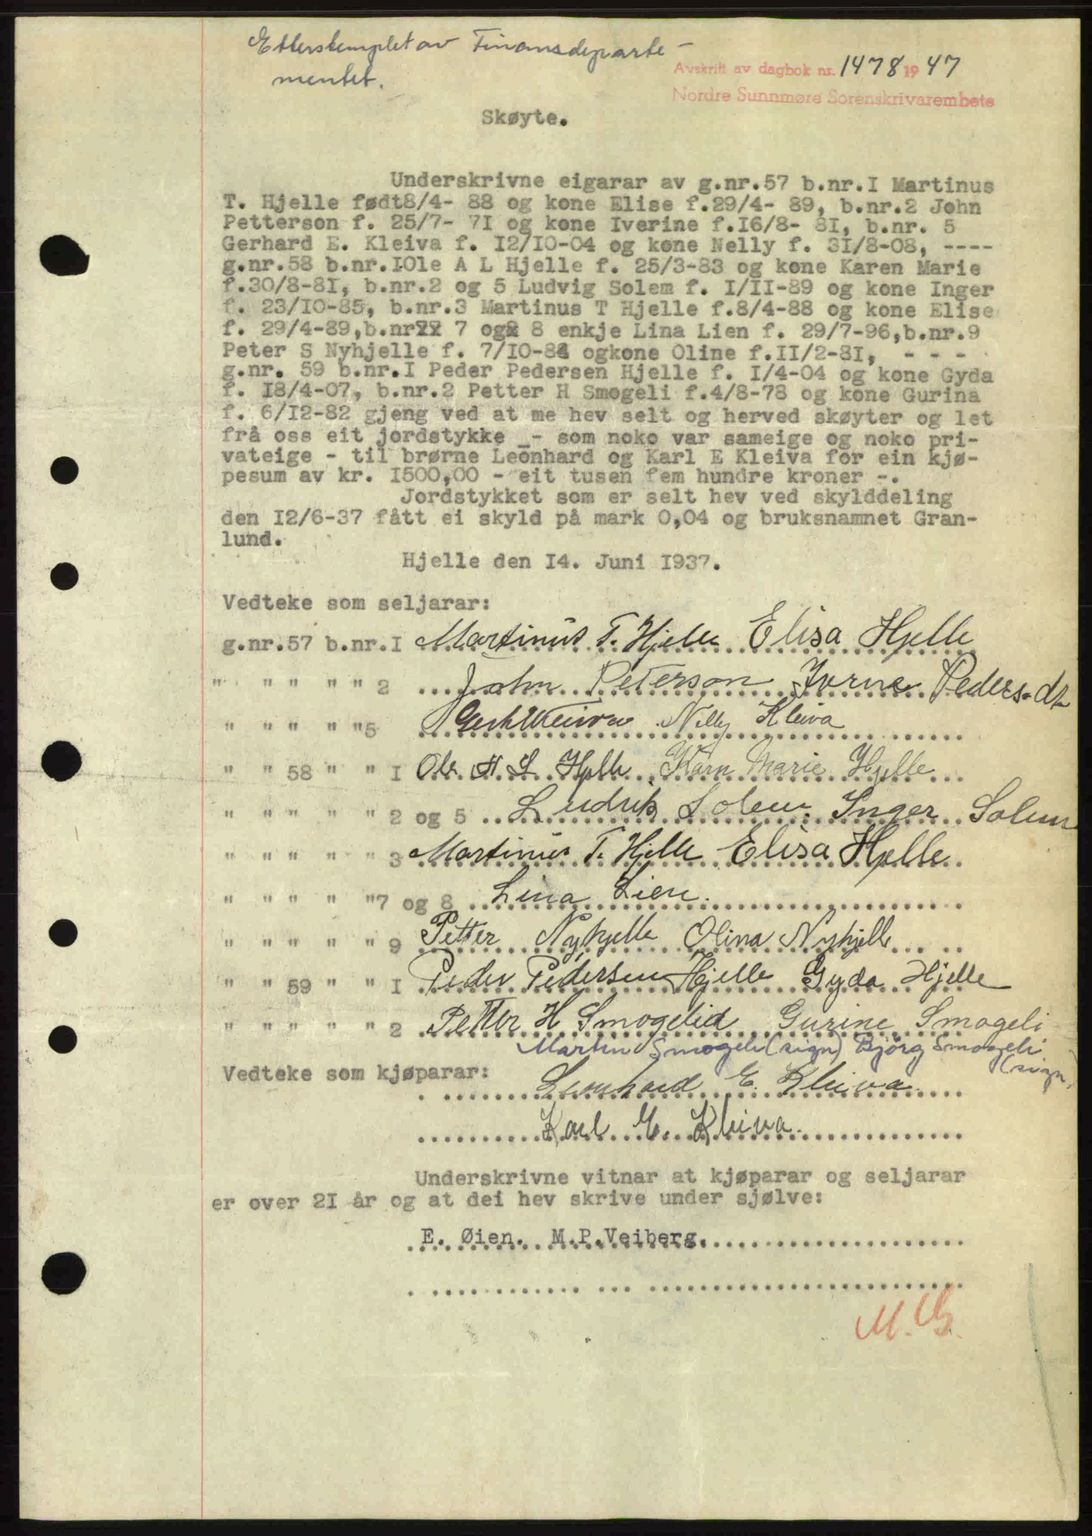 Etterstemplet av Finansdeparte-
mentet.
Avskrift av dagbok nr. 1478 1947
Nordre Sunnmøre Sorenskrivarembete
Skøyte.
Underskrivne eigarar av g.nr.57 b.nr.I Martinus
T. Hjelle født8/4- 88 og kone Elise f.29/4- 89, b.nr.2 John
Petterson f. 25/7- 71 og kone Iverine f.I6/8- 8I, b.nr. 5
Gerhard E. Kleiva f. I2/I0-04 og kone Nelly f. 3I/8-08, ----
g.nr.58 b.nr.IOle A L Hjelle f. 25/3-83 og kone Karen Marie
f.30/8-8I, b.nr.2 og 5 Ludvig Solem f. I/II-89 og kone Inger
f. 23/I0-85, b.nr.3 Martinus T Hjelle f.8/4-88 og kone Elise
f. 29/4-89,b.nr 7 og 8 enkje Lina Lien f. 29/7-96,b.nr.9
Peter S Nyhjelle f. 7/I0-84 ogkone Oline f.II/2-8I, - - -
g.nr. 59 b.nr.I Peder Pedersen Hjelle f. I/4-04 og kone Gyda
f. I8/4-07, b.nr.2 Petter H Smogeli f.4/8-78 og kone Gurina
f. 6/I2-82 gjeng ved at me hev selt og herved skøyter og let
frå oss eit jordstykke - som noko var sameige og noko pri-
vateige - til brørne Leonhard og Karl E Kleiva for ein kjø-
pesum av kr. I500,00 - eit tusen fem hundre kroner -.
Jordstykket som er selt hev ved skylddeling
den I2/6-37 fått ei skyld på mark 0,04 og bruksnamnet Gran-
lund.
Hjelle den I4. Juni I937.
Vedteke som seljarar:
g.nr.57 b.nr.I Martinus T. Hjelle Elisa Hjelle
" " " " " 2 John Peterson Ivrine Pedersdt
" " " " "5 Gerh E Kleiva Nelly Kleiva
" " 58 " " I Ole A L Hjelle Karn Marie Hjelle
" " " " " 2 og 5 Ludvik Solem Inger Solem
" " " " " 3 Martinus T. Hjelle Elisa Hjelle
" " " " "7 og 8 Lina Lien.
" " " " " 9 Petter Nyhjelle Olina Nyhjelle
" " 59 " " I Peder Pedersen Hjelle Gyda Hjelle
" " " " " 2 Petter H Smogelid Gurine Smogeli
Martin Smogeli (sign) Bjórg Smogeli
(sign)
Vedteke som kjøparar: Leonhard E. Kleiva
Karl E. Kleiva.
Underskrivne vitnar at kjøparar og seljarar
er over 2I år og at dei hev skrive under sjølve:
E. Øien. M.P.Veiberg.
M.G.